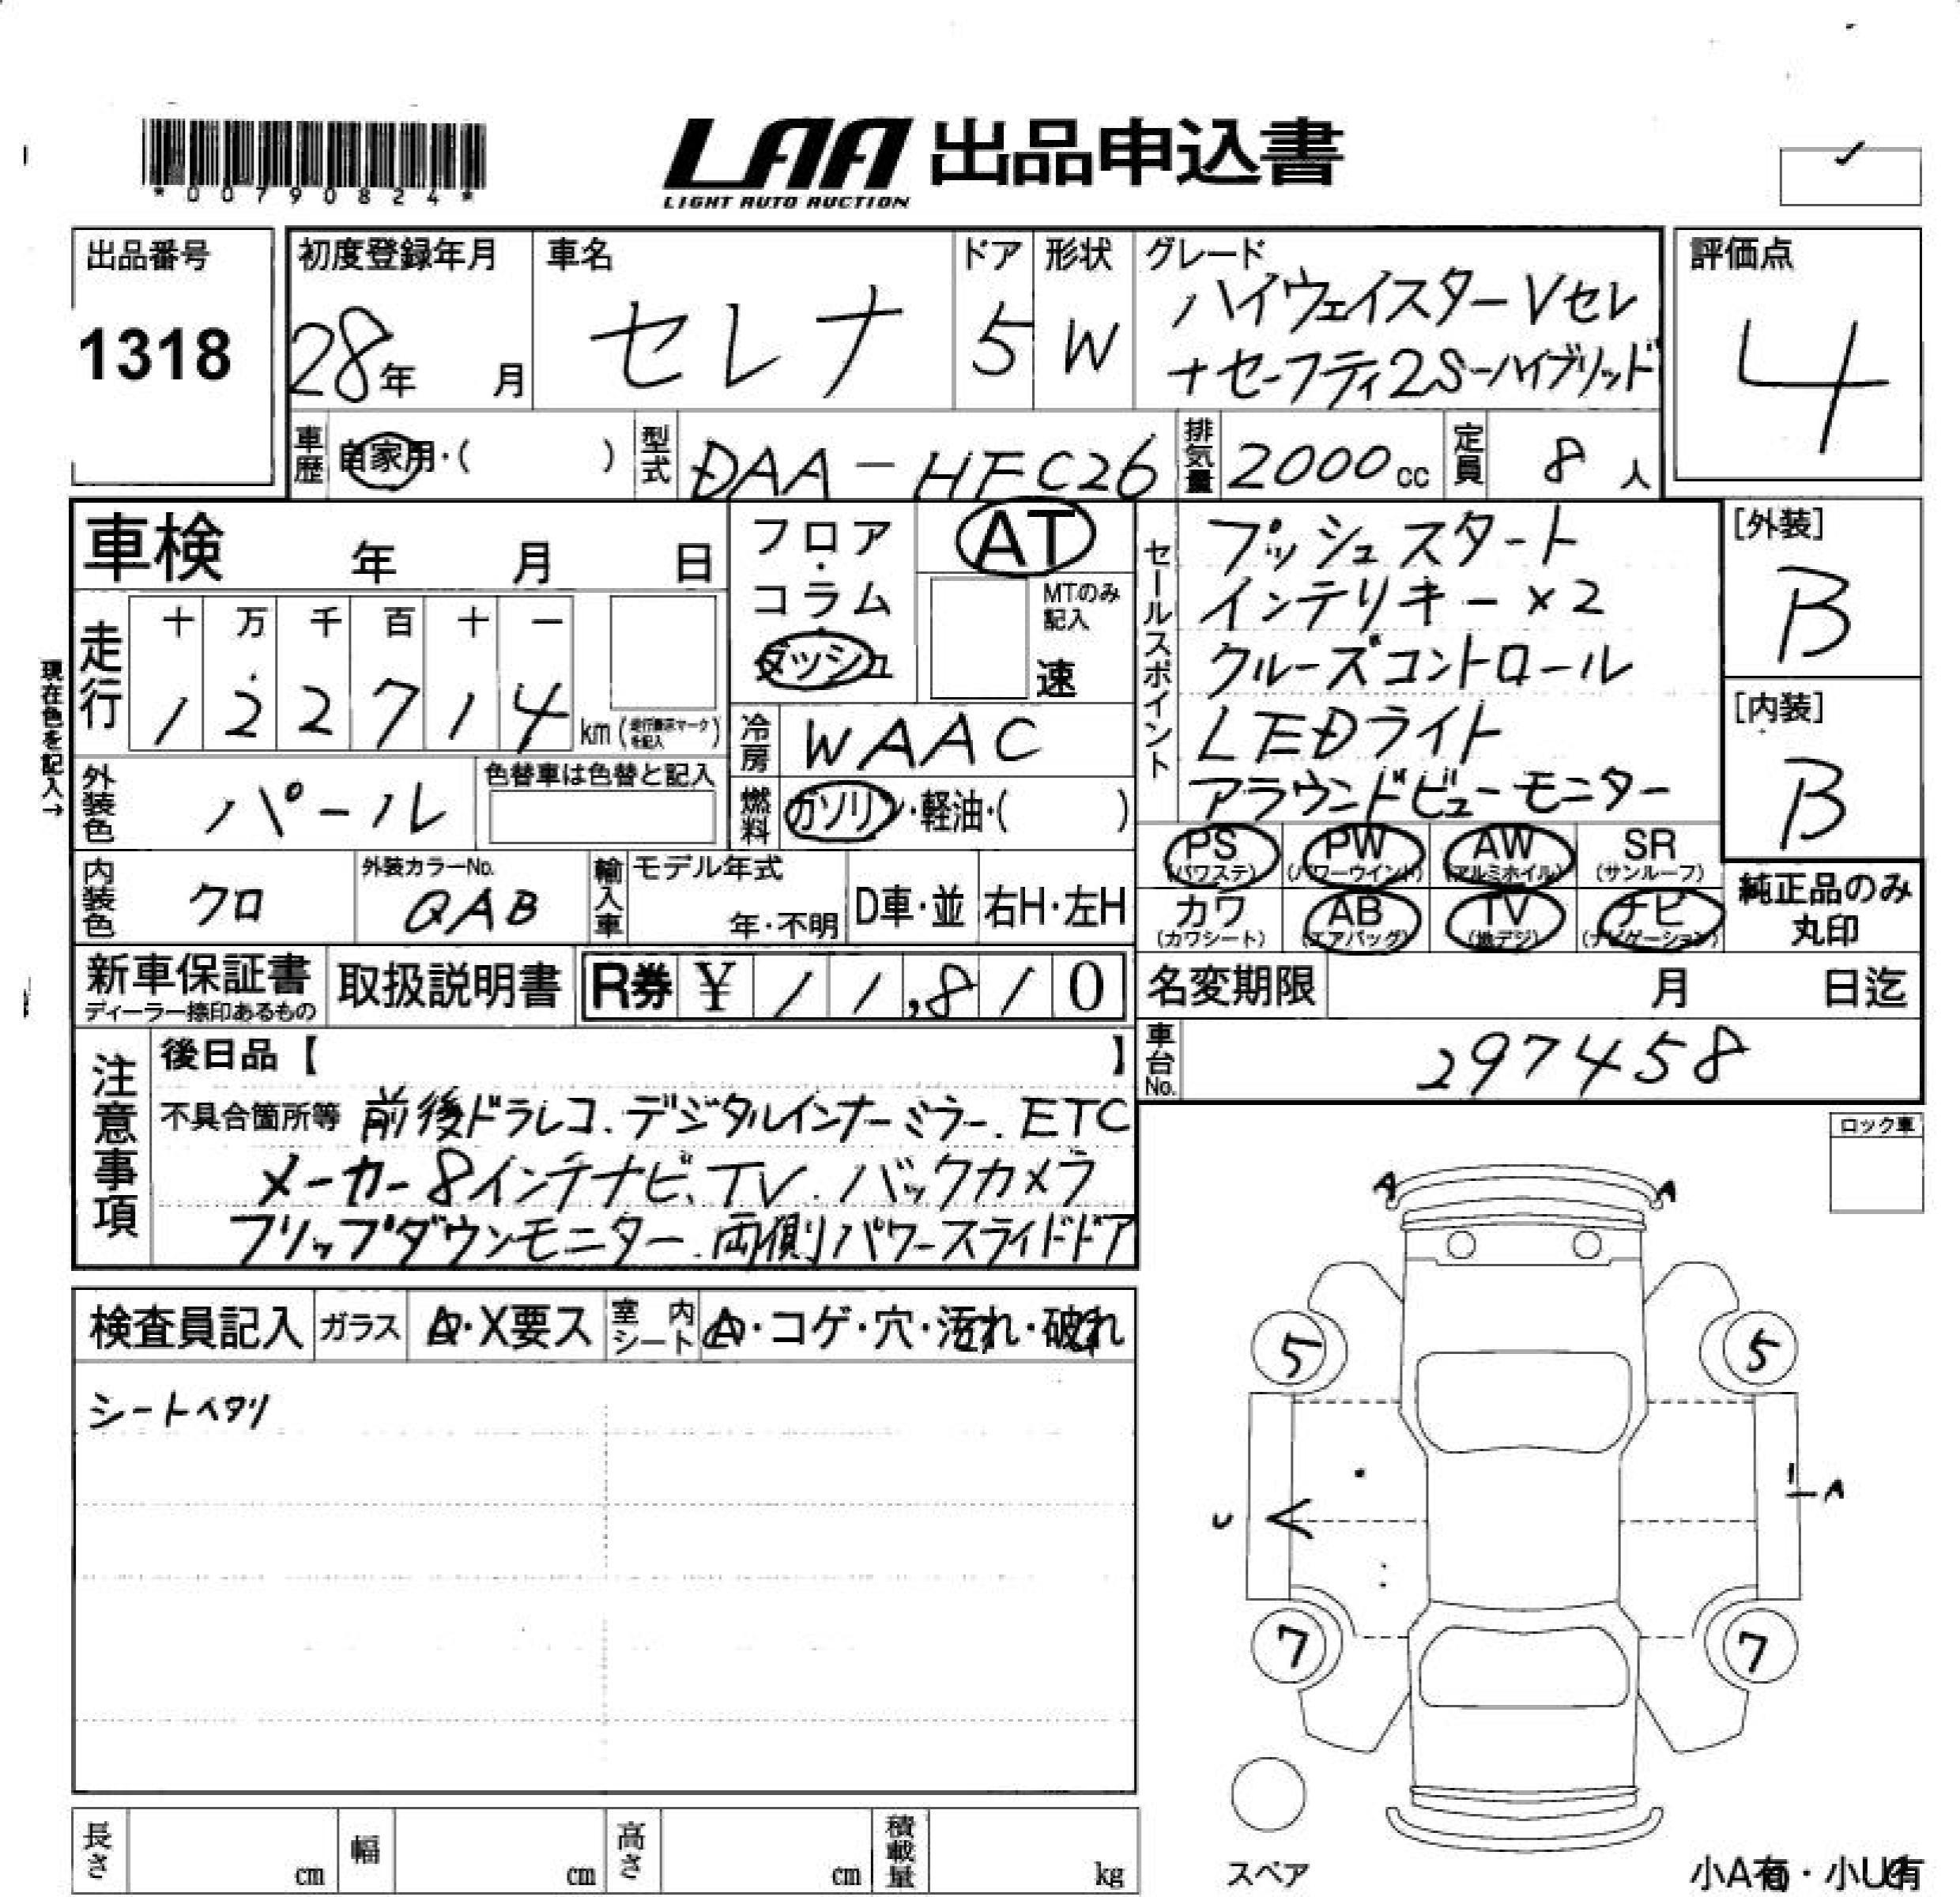 *00790824*
LAA 出品申込書
LIGHT AUTO AUCTION
出品番号
1318
初度登録年月
28年 月
車名
セレナ
ドア
5
形状
W
グレード
ハイウェイスターVセレ
ナセーフティ2S-ハイブリッド
評価点
4
車歴
自家用・( )
型式
DAA-HFC26
排気量
2000cc
定員
8人
車検 年 月 日
フロア・
コラム・
ダッシュ
AT
MTのみ
記入
速
走行
十 万 千 百 十 一
1 2 2 7 1 4 km(走行表示マークを記入)
現在色を記入→
外装色
パール
色替車は色替と記入
冷房
WAAC
燃料
ガソリン・軽油・( )
セールスポイント
プッシュスタート
インテリキー×2
クルーズコントロール
LEDライト
アラウンドビューモニター
[外装]
B
[内装]
B
内装色
クロ
外装カラーNo.
QAB
輸入車
モデル年式
年・不明
D車・並
右H・左H
PS
(パワステ)
PW
(パワーウインド)
AW
(アルミホイル)
SR
(サンルーフ)
カワ
(カワシート)
AB
(エアバッグ)
TV
(地デジ)
ナビ
(ナビゲーション)
純正品のみ
丸印
新車保証書
ディーラー捺印あるもの
取扱説明書
R券 ¥ 11,810
名変期限 月 日迄
車台No.
297458
注意事項
後日品【 】
不具合箇所等 前後ドラレコ.デジタルインナーミラー.ETC
メーカー8インチナビ.TV.バックカメラ
フリップダウンモニター.両側パワースライドドア
ロック車
検査員記入
ガラス
A・X要ス
室内シート
A・コゲ・穴・汚れ・破れ
シートヘタリ
A A
5 5
U
A
7 7
スペア
小A有・小U有
長さ cm
幅 cm
高さ cm
積載量 kg